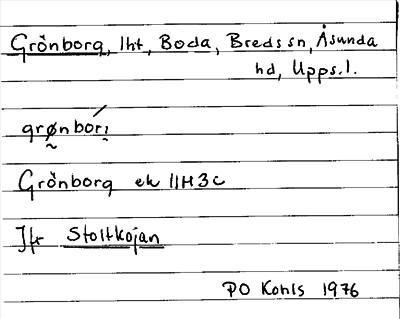 Grönborg, lht, Boda, Breds sn, Åsunda
hd, Upps. l.
grønbórı̣
Grönborg ek 11H3c
Jfr Stoltkojan
PO Kohls 1976